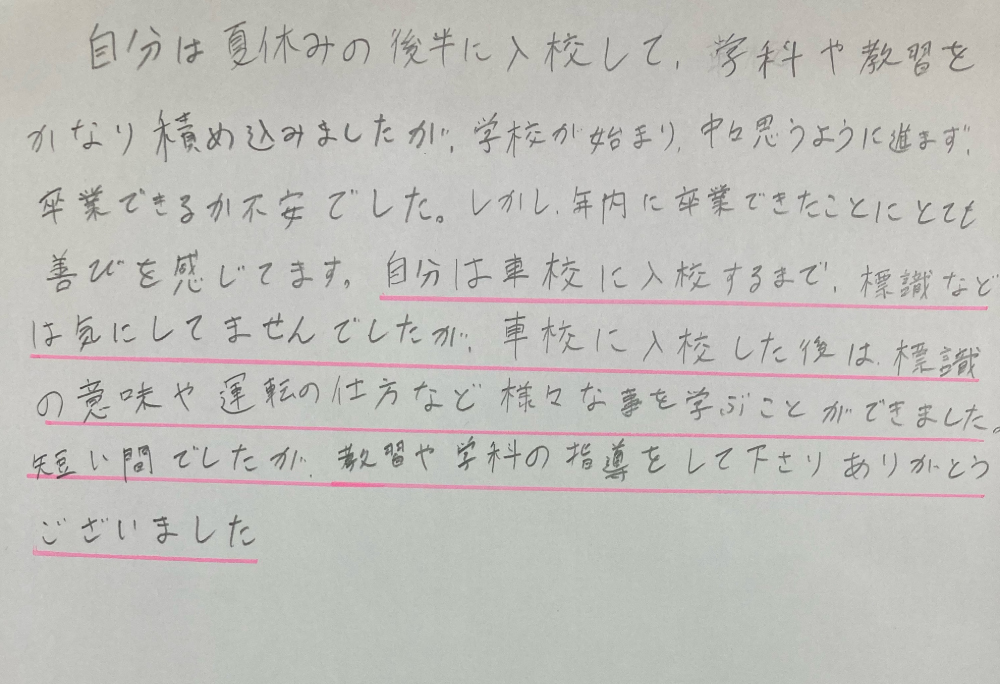 自分は夏休みの後半に入校して、学科や教習を
かなり積め込みましたが、学校が始まり、中々思うように進まず、
卒業できるか不安でした。しかし、年内に卒業できたことにとても
喜びを感じてます。自分は車校に入校するまで、標識など
は気にしてませんでしたが、車校に入校した後は、標識
の意味や運転の仕方など様々な事を学ぶことができました。
短い間でしたが、教習や学科の指導をして下さりありがとう
ございました